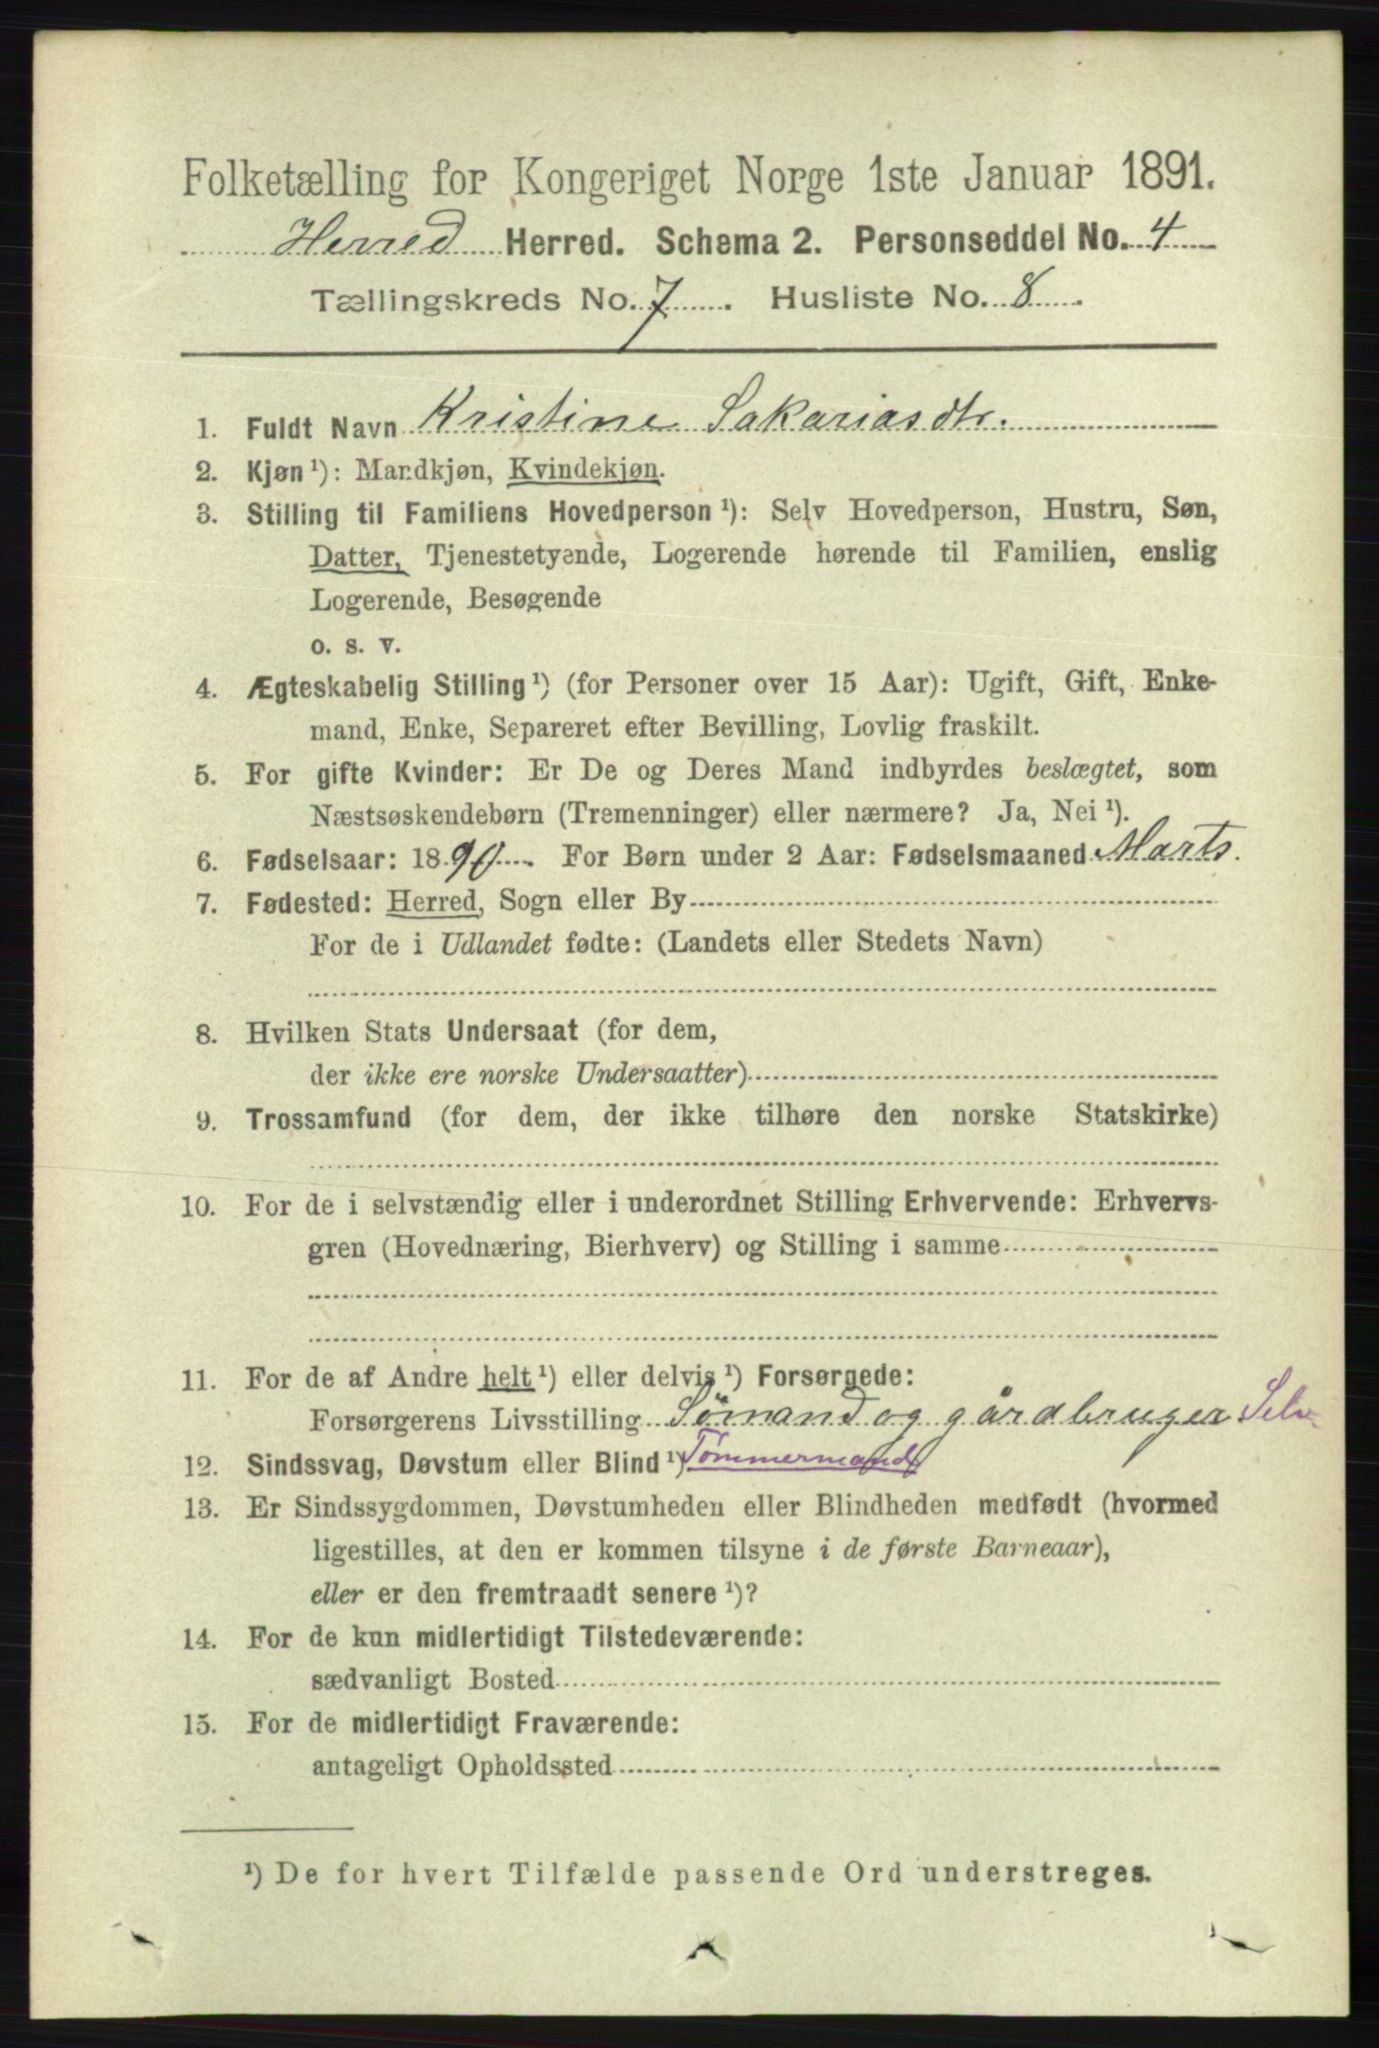 Folketælling for Kongeriget Norge 1ste Januar 1891.
Herred Herred. Schema 2. Personseddel No. 4
Tællingskreds No. 7. Husliste No. 8.
1. Fuldt Navn Kristine Sakariasdtr.
2. Kjøn ¹): Mandkjøn, Kvindekjøn.
3. Stilling til Familiens Hovedperson ¹): Selv Hovedperson, Hustru, Søn,
Datter, Tjenestetyende, Logerende hørende til Familien, enslig
Logerende, Besøgende
o. s. v.
4. Ægteskabelig Stilling ¹) (for Personer over 15 Aar): Ugift, Gift, Enke-
mand, Enke, Separeret efter Bevilling, Lovlig fraskilt.
5. For gifte Kvinder: Er De og Deres Mand indbyrdes beslægtet, som
Næstsøskendebørn (Tremenninger) eller nærmere? Ja, Nei ¹).
6. Fødselsaar: 1890. For Børn under 2 Aar: Fødselsmaaned Marts.
7. Fødested: Herred, Sogn eller By
For de i Udlandet fødte: (Landets eller Stedets Navn)
8. Hvilken Stats Undersaat (for dem,
der ikke ere norske Undersaatter)
9. Trossamfund (for dem, der ikke tilhøre den norske Statskirke)
10. For de i selvstændig eller i underordnet Stilling Erhvervende: Erhvervs-
gren (Hovednæring, Bierhverv) og Stilling i samme
11. For de af Andre helt ¹) eller delvis ¹) Forsørgede:
Forsørgerens Livsstilling Sömand og gårdbruger Selv
12. Sindssvag, Døvstum eller Blind ¹) Tömmermand
13. Er Sindssygdommen, Døvstumheden eller Blindheden medfødt (hvormed
ligestilles, at den er kommen tilsyne i de første Barneaar),
eller er den fremtraadt senere ¹)?
14. For de kun midlertidigt Tilstedeværende:
sædvanligt Bosted
15. For de midlertidigt Fraværende:
antageligt Opholdssted
¹) De for hvert Tilfælde passende Ord understreges.